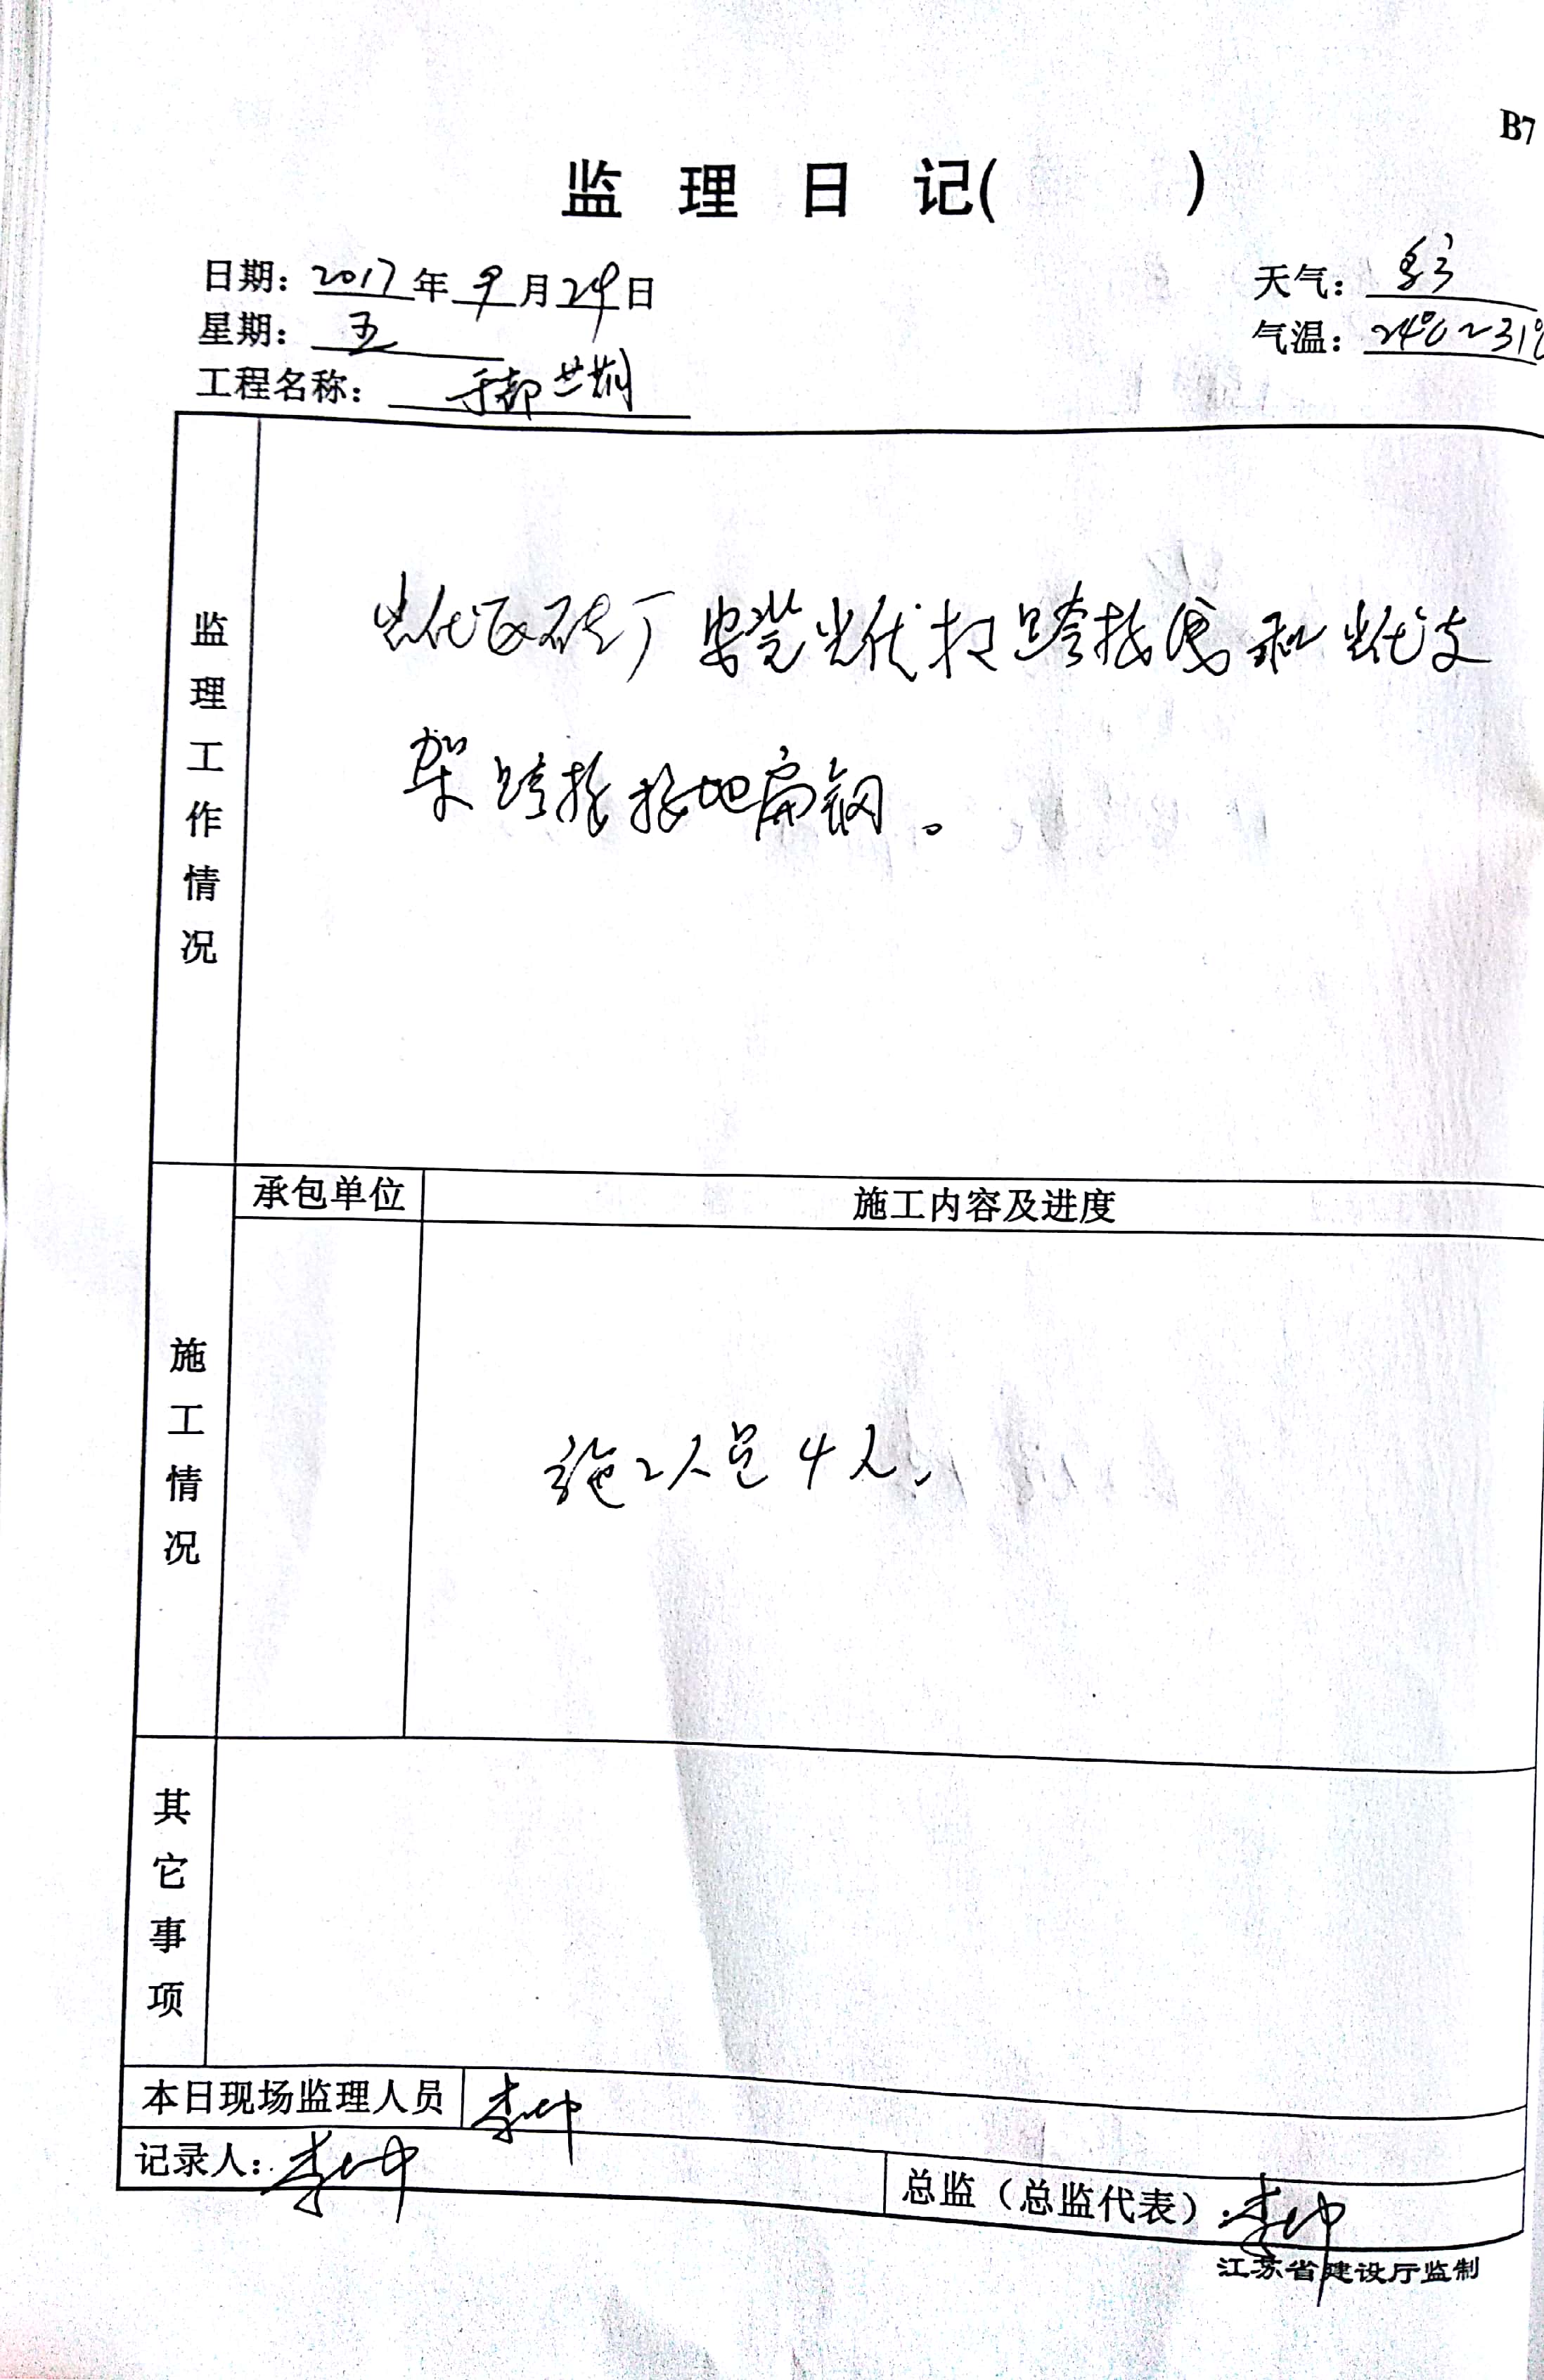 B7
监理日记(　　)
日期：2017年9月29日
天气：多云
星期：五
气温：24℃~31℃
工程名称：于都
监理工作情况
瓦砖厂安装光伏板跨接线和光伏支
架跨接接地扁钢。
承包单位
施工内容及进度
施工情况
施工人员4人。
其它事项
本日现场监理人员 李
记录人：李
总监（总监代表）：李
江苏省建设厅监制